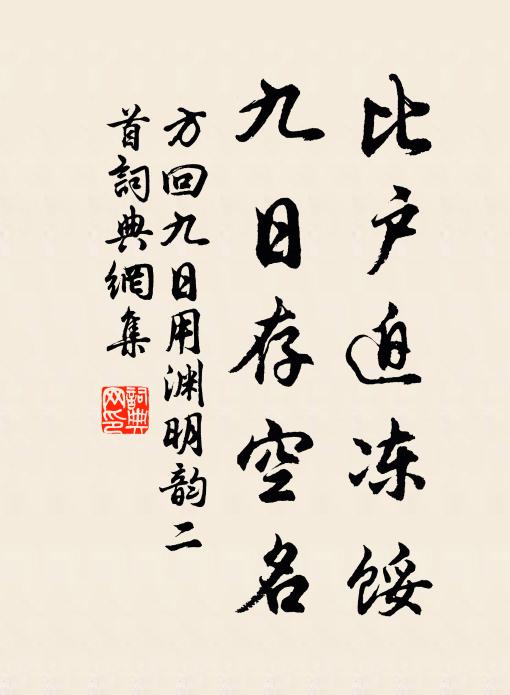 比户迫冻馁
九日存空名
方回九日用渊明韵二
首詞典網集
詞典
网印